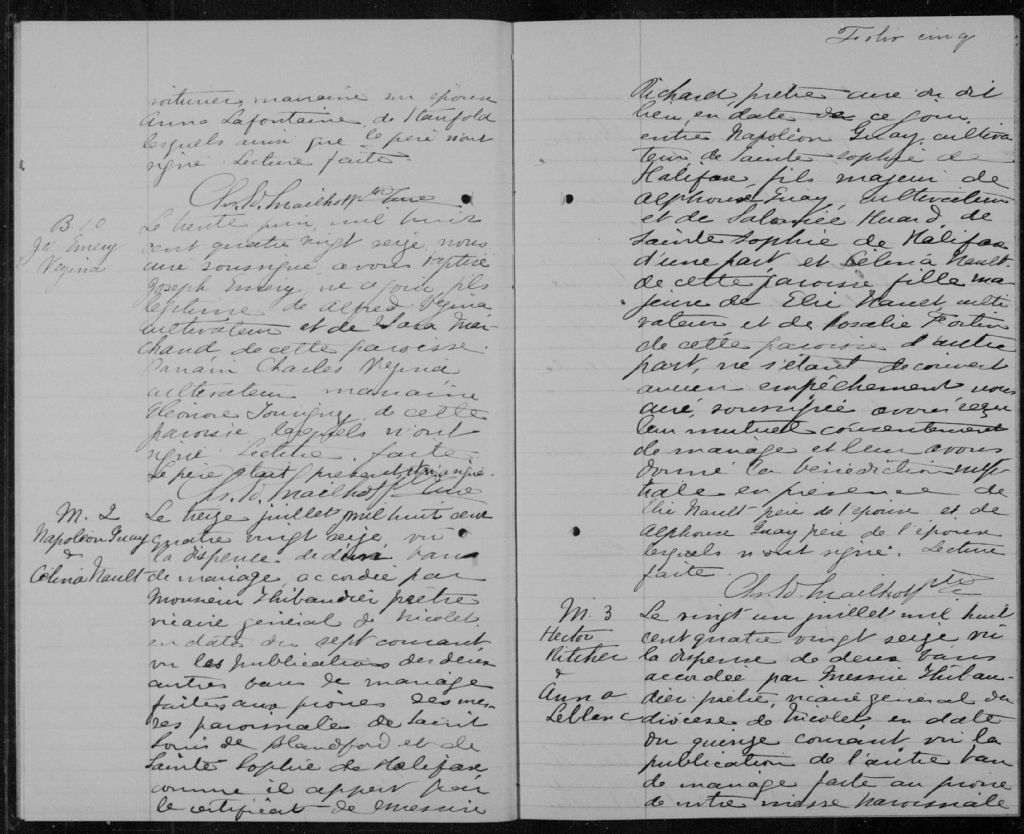 voiturier, marraine son épouse
Anna Lafontaine, de Stanfold
lesquels ainsi que le père n'ont
signé. Lecture faite.
Ch. Ed. Mailhot ptre Curé
B. 10
Js Emery
Vezina
Le trente juin, mil huit
cent quatre vingt seize, nous
curé soussigné, avons baptisé
Joseph Emery, né ce jour, fils
légitime de Alfred Vezina
cultivateur et de Sara Mar-
chand de cette paroisse.
Parrain Charles Vezina
cultivateur marraine
Eléonore Tourigny de cette
paroisse lesquels n'ont
signé. Lecture faite.
Le père était présent
Ch. Ed. Mailhot Ptre Curé
M. 2
Napoléon Guay
&
Célina Nault
Le treize juillet mil huit cent
quatre vingt seize, vu
la dispense d'un ban
de mariage, accordée par
Monsieur Thibaudier prêtre
vicaire général de Nicolet,
en date du sept courant,
vu les publications des deux
autres bans de mariage
faites aux prônes des mes-
ses paroissiale de Saint
Louis de Blandford et de
Sainte Sophie de Halifax
comme il appert par
le certificat de Messire
Folio cinq
Richard, prêtre curé du dit
lieu, en date de ce jour,
entre Napoléon Guay, cultiva-
teur, de Sainte Sophie de
Halifax, fils majeur de
Alphonse Guay, cultivateur
et de Salomée Huard de
Sainte Sophie de Halifax
d'une part, et Célina Nault
de cette paroisse fille ma-
jeure de Elie Nault culti
vateur, et de Rosalie Fortin
de cette paroisse d'autre
part, ne s'étant découvert
aucun empêchement nous
curé, soussigné avons reçu
leur mutuel consentement
de mariage et leur avons
donné la bénédiction nup-
tiale en présence de
Elie Nault père de l'épouse et de
Alphonse Guay père de l'époux
lesquels n'ont signé. Lecture
faite.
Ch. Ed. Mailhot Ptre
M. 3
Hector
Ritcher
&
Anna
Leblanc
Le vingt un juillet mil huit
cent quatre vingt seize vu
la dispense de deux bans
accordée par Messire Thibau-
dier prêtre, vicaire général du
diocèse de Nicolet, en date
du quinze courant vu la
publication de l'autre ban
de mariage faite au prône
de notre messe paroissiale